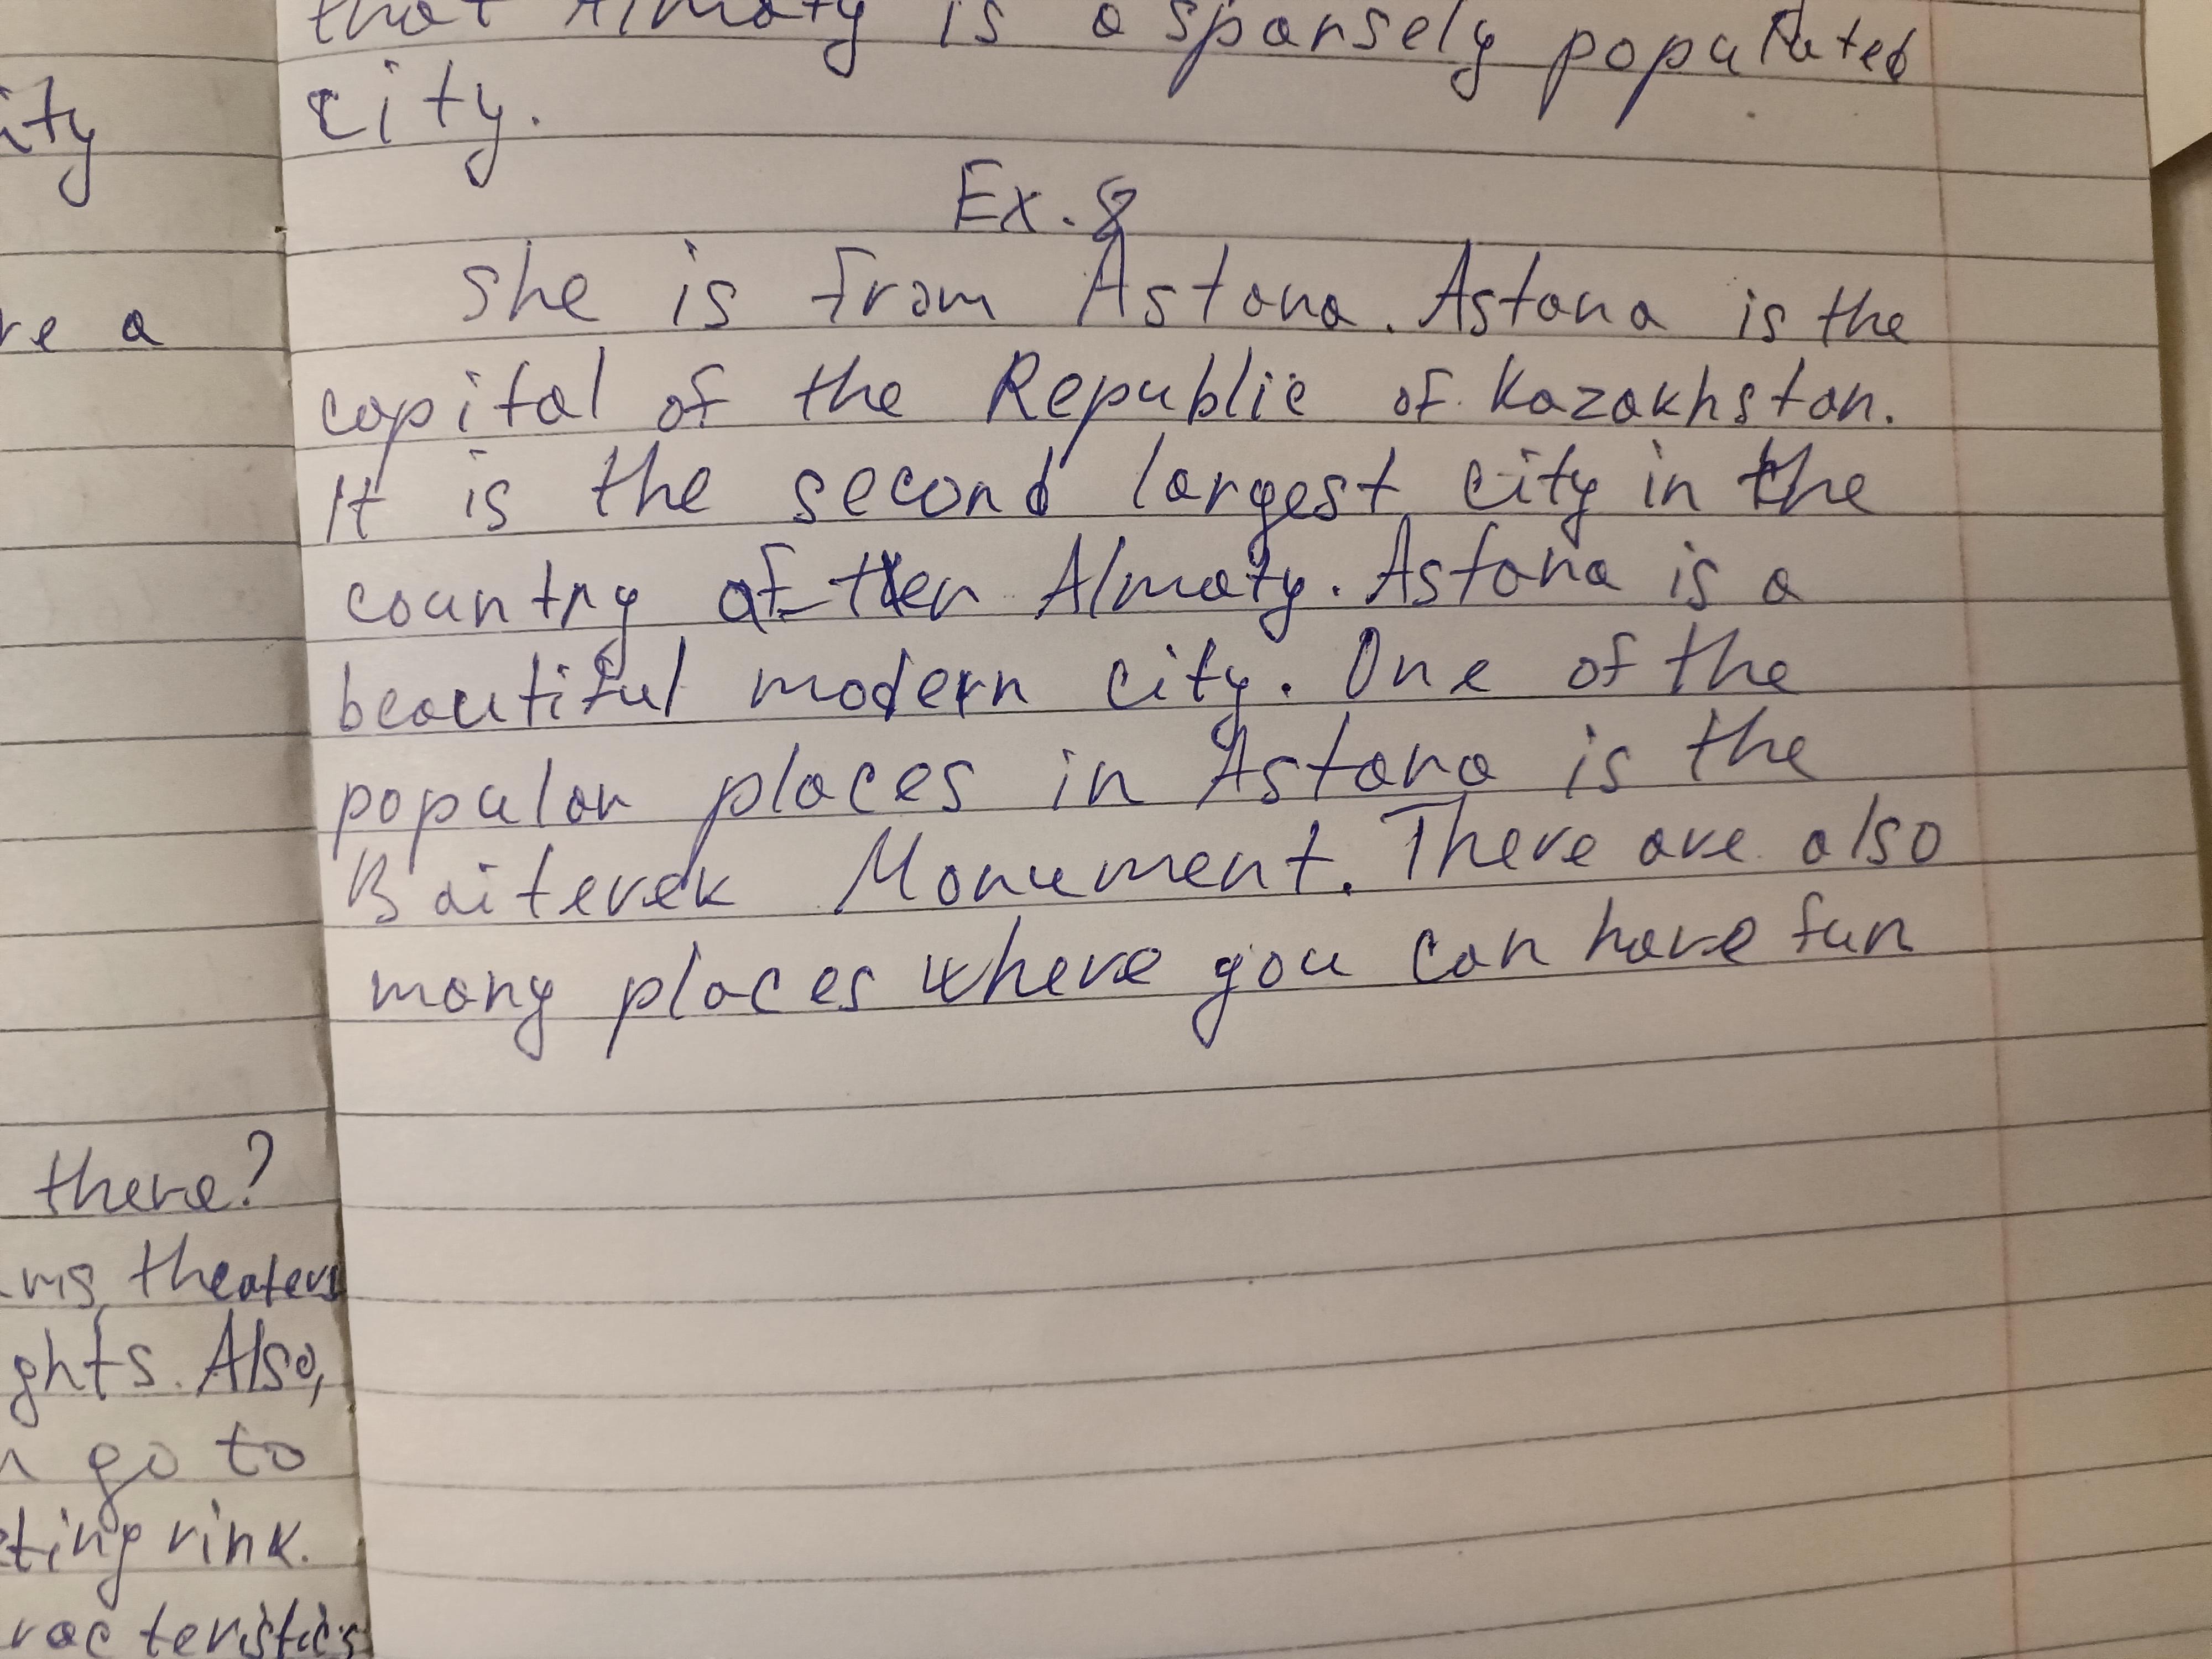 ity
re a
there?
theaters
ghts. Also,
go to
ting rink.
racteristics
that Almaty is a sparsely populated
city.
Ex. 8
She is from Astana. Astana is the
capital of the Republic of Kazakhstan.
It is the second largest city in the
country after Almaty. Astana is a
beautiful modern city. One of the
popular places in Astana is the
Baiterek Monument. There are also
many places where you can have fun